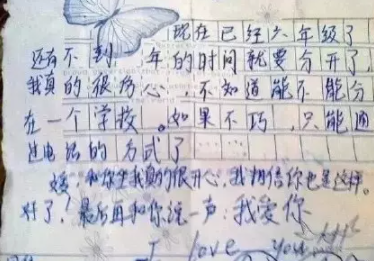 现在已经六年级了
还有不到 年的时间就要分开了,
我真的很伤心,不知道能不能分
在一个学校。如果不巧,只能通
过电话的方式了……
媛:和你坐我真的很开心,我相信你也是这样。
好了!最后再和你说一声:我爱你
I love you